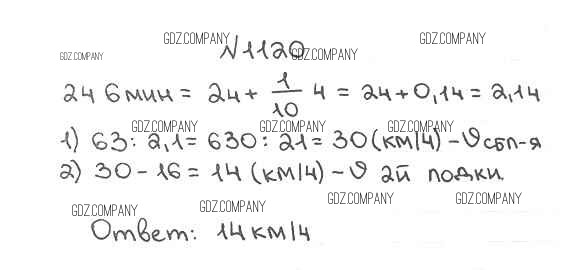 GDZ.COMPANY GDZ.COMPANY
GDZ.COMPANY №1120 GDZ.COMPANY
2ч 6мин = 2ч + 1/10 ч = 2ч + 0,1ч = 2,1ч
GDZ.COMPANY GDZ.COMPANY GDZ.COMPANY
1) 63 : 2,1 = 630 : 21 = 30 (км/ч) – υ сбл-я
2) 30 – 16 = 14 (км/ч) – υ 2й лодки.
GDZ.COMPANY GDZ.COMPANY GDZ.COMPANY GDZ.COMPANY
Ответ: 14 км/ч